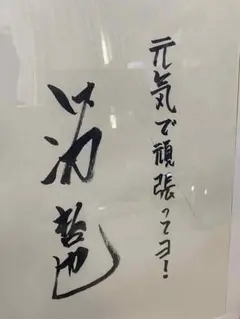 元気で頑張ってヨ!
哲也